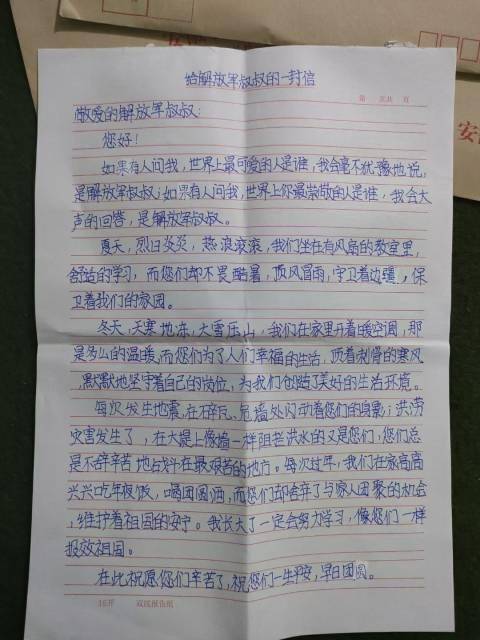 给解放军叔叔的一封信
第 页共 页
敬爱的解放军叔叔:
您好!
如果有人问我,世界上最可爱的人是谁,我会毫不犹豫地说,
是解放军叔叔;如果有人问我,世界上你最崇敬的人是谁,我会大
声的回答,是解放军叔叔。
夏天,烈日炎炎,热浪滚滚,我们坐在有风扇的教室里,
舒适的学习,而您们却不畏酷暑,顶风冒雨,守卫着边疆,保
卫着我们的家园。
冬天,天寒地冻,大雪压山,我们在家里开着暖空调,那
是多么的温暖,而您们为了人们幸福的生活,顶着刺骨的寒风
,默默地坚守着自己的岗位,为我们创造了美好的生活环境。
每次发生地震,在碎瓦、危墙处闪动着您们的身影;洪涝
灾害发生了,在大堤上像墙一样阻拦洪水的又是您们,您们总
是不辞辛苦地战斗在最艰苦的地方。每次过年,我们在家高高
兴兴吃年夜饭,喝团圆酒,而您们却舍弃了与家人团聚的机会
,维护着祖国的安宁。我长大了一定会努力学习,像您们一样
报效祖国。
在此祝愿您们辛苦了,祝您们一生平安,早日团圆。
16开 双线报告纸
安